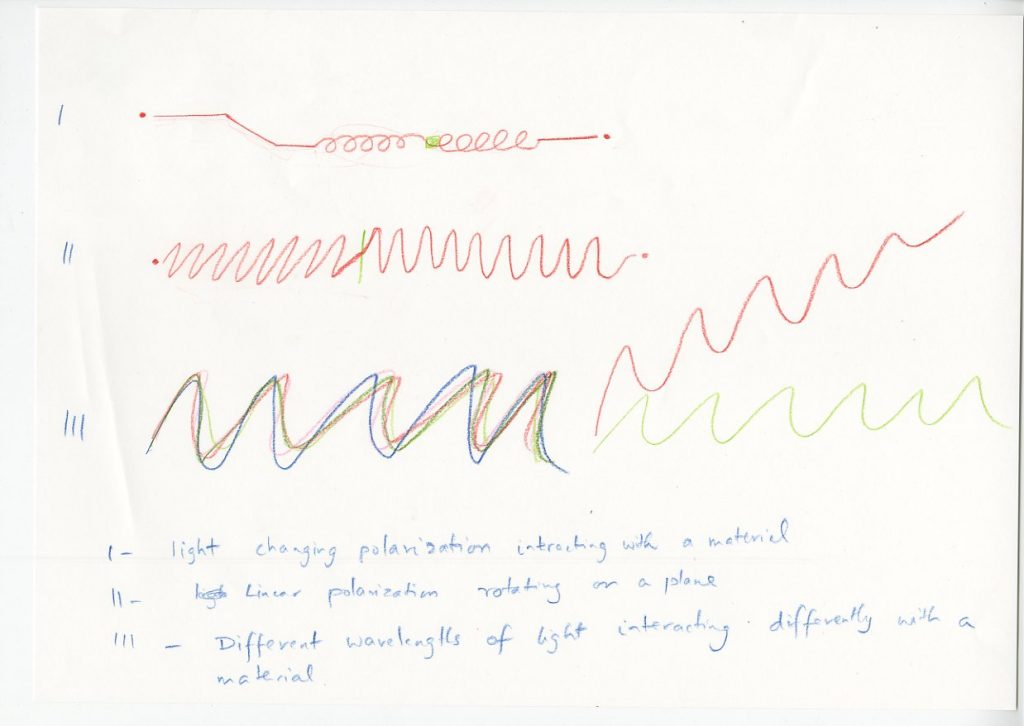 I
II
III
I - light changing polarization intracting with a material
II - Linear polarization rotating on a plane
III - Different wavelengths of light interacting differently with a
material.